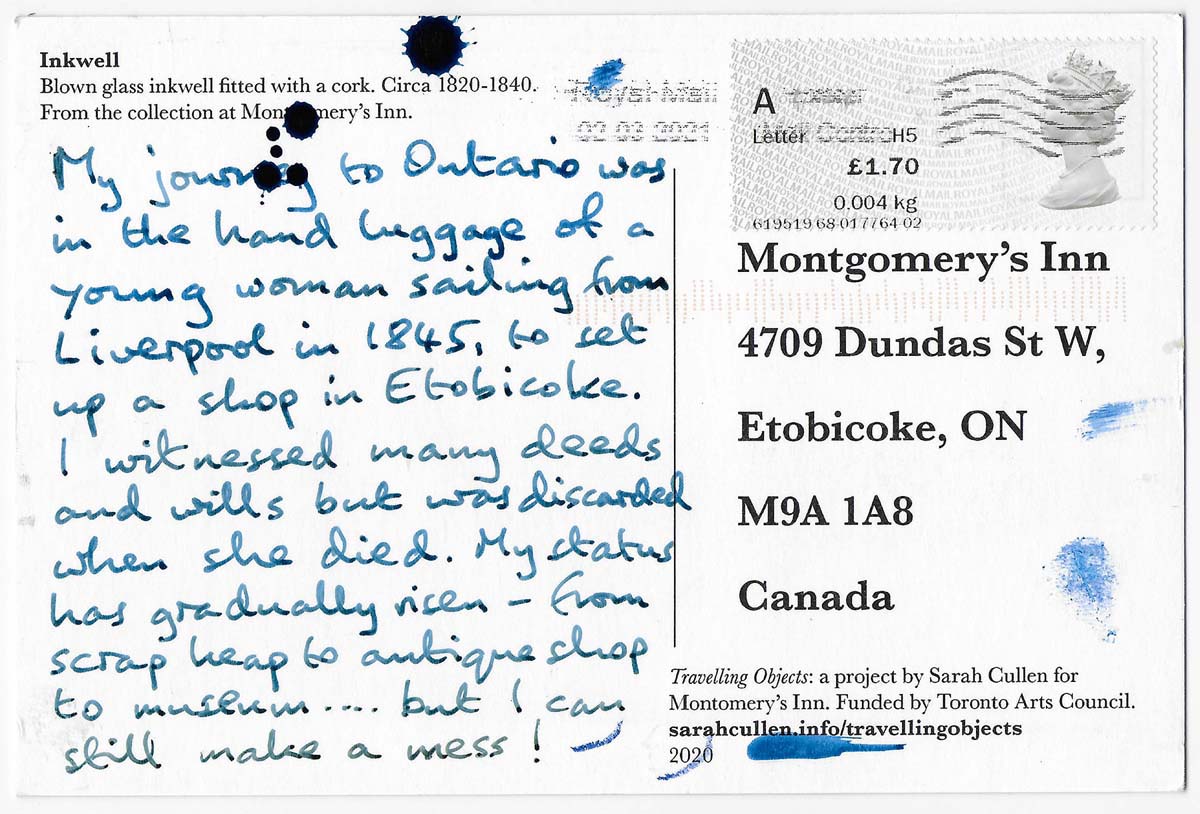 Inkwell
Blown glass inkwell fitted with a cork. Circa 1820-1840.
From the collection at Montgomery's Inn.
My journey to Ontario was
in the hand luggage of a
young woman sailing from
Liverpool in 1845, to set
up a shop in Etobicoke.
I witnessed many deeds
and wills but was discarded
when she died. My status
has gradually risen – from
scrap heap to antique shop
to museum.... but I can
still make a mess!
Royal Mail
A
Letter
H5
£1.70
0.004 kg
619519 68-017764-02
Montgomery's Inn
4709 Dundas St W,
Etobicoke, ON
M9A 1A8
Canada
Travelling Objects: a project by Sarah Cullen for
Montomery's Inn. Funded by Toronto Arts Council.
sarahcullen.info/travellingobjects
2020